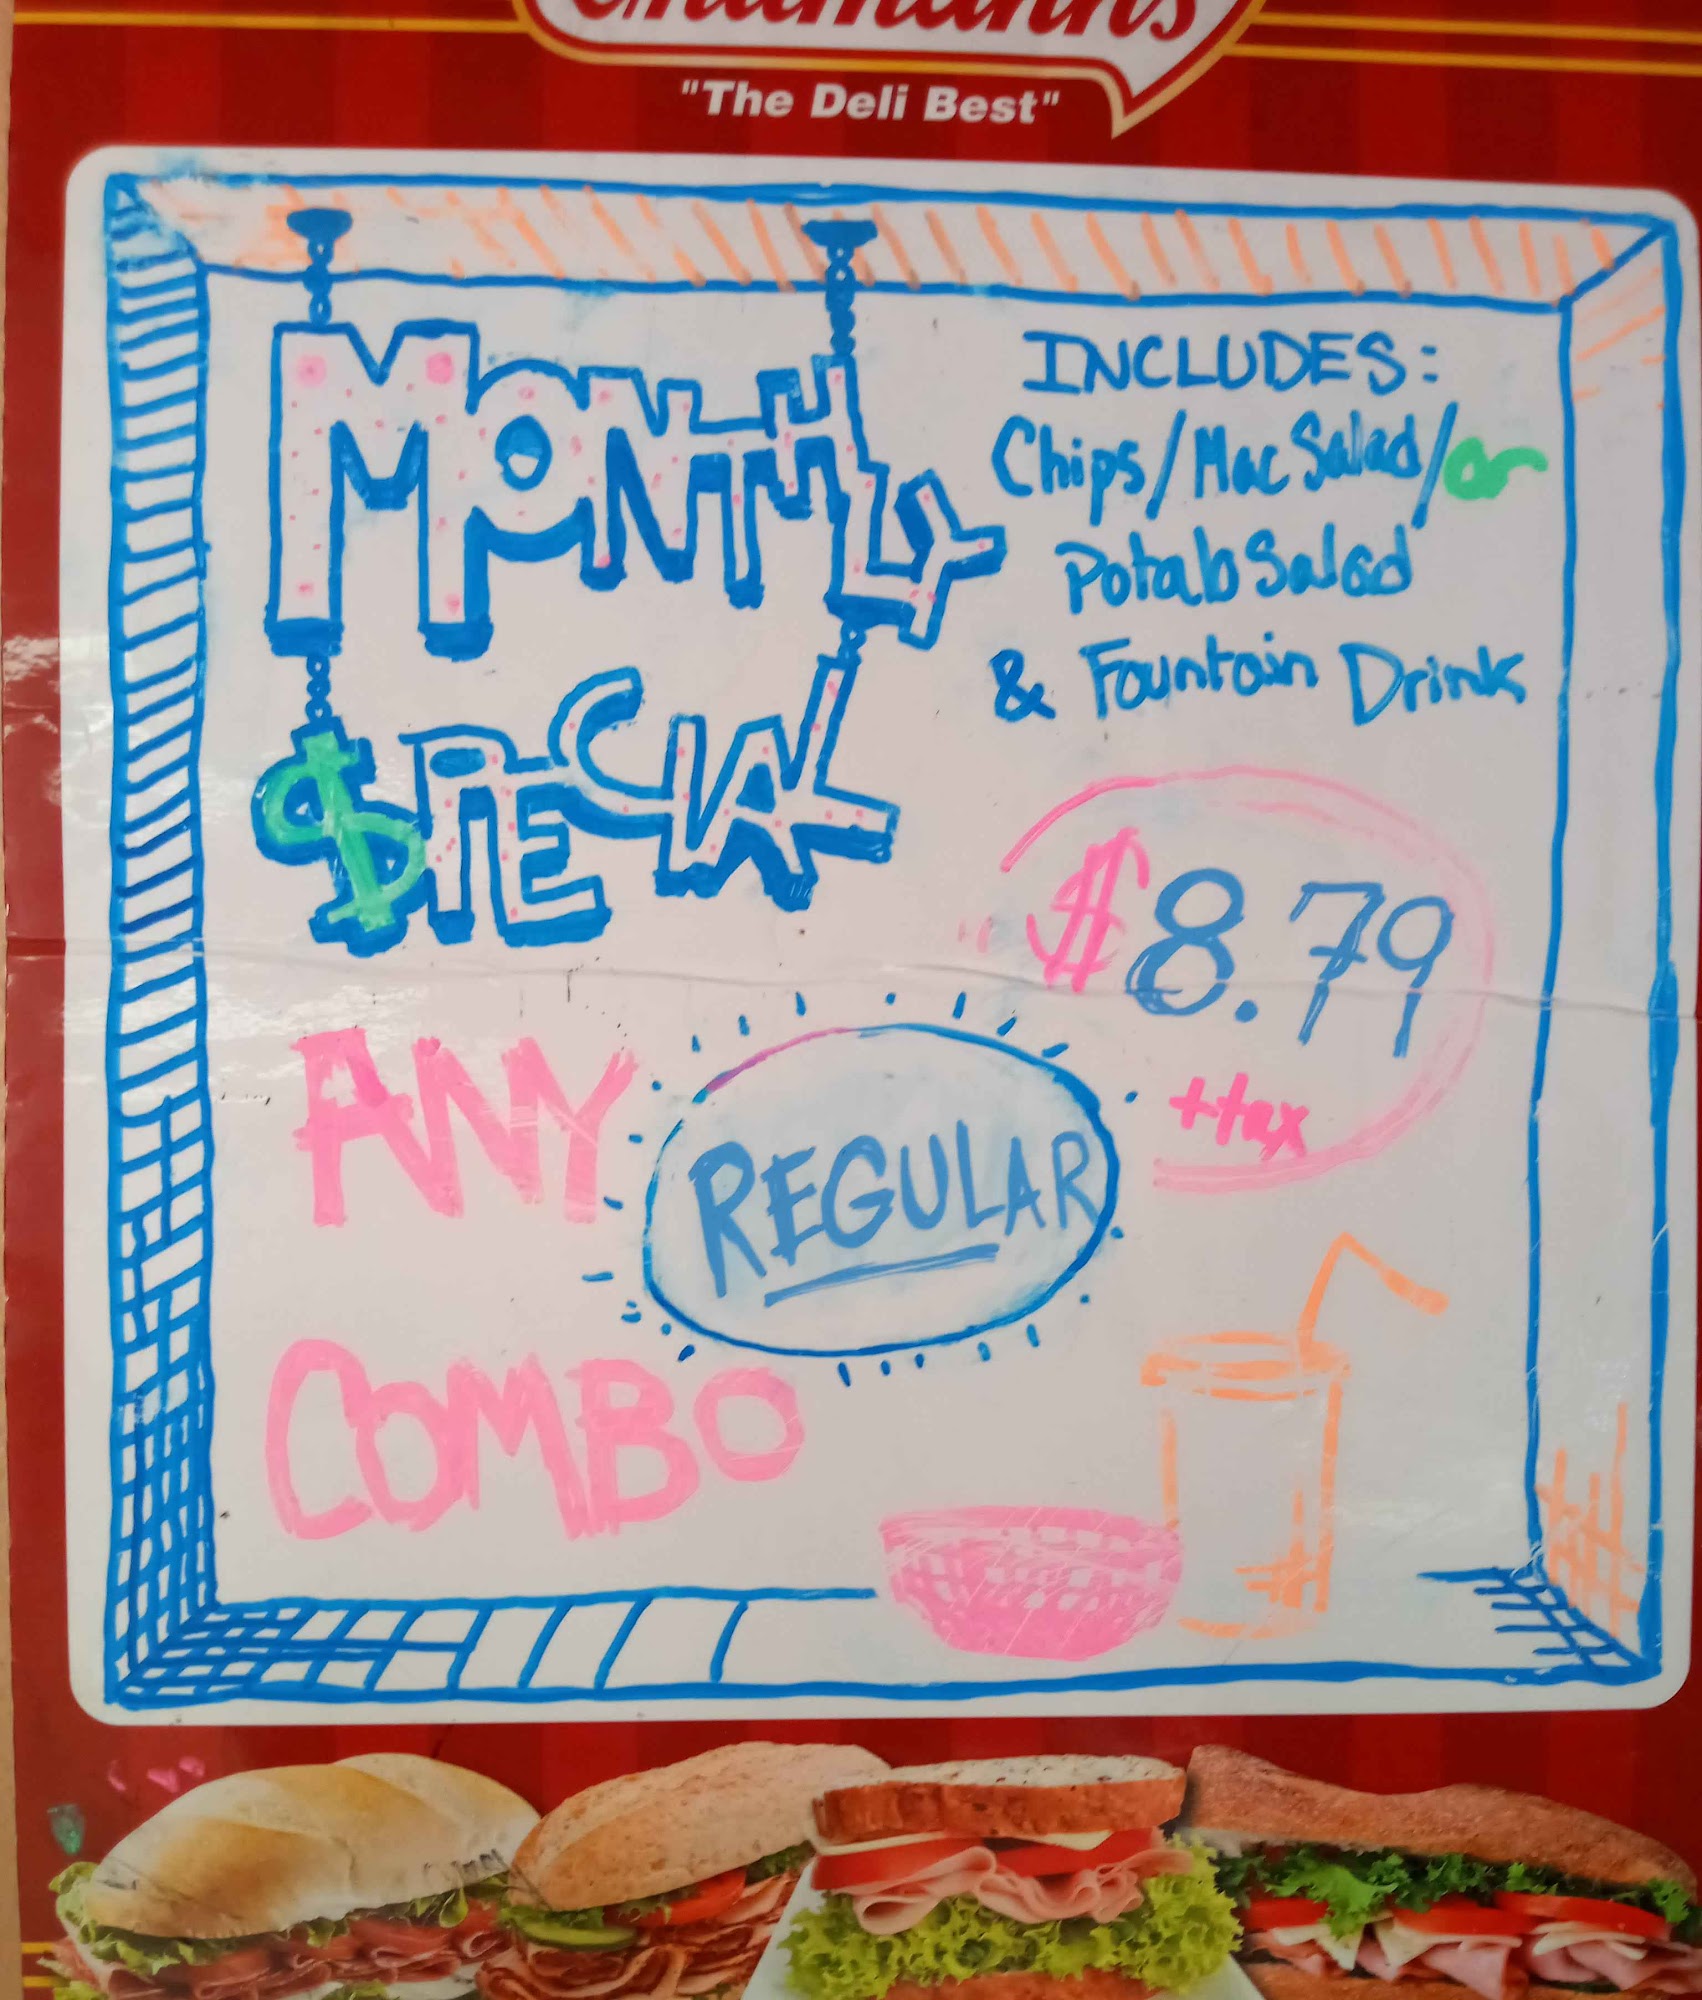 "The Deli Best"
MONTHLY
$PECIAL
INCLUDES:
Chips/Mac Salad/or
Potato Salad
& Fountain Drink
$8.79
+tax
ANY
REGULAR
COMBO